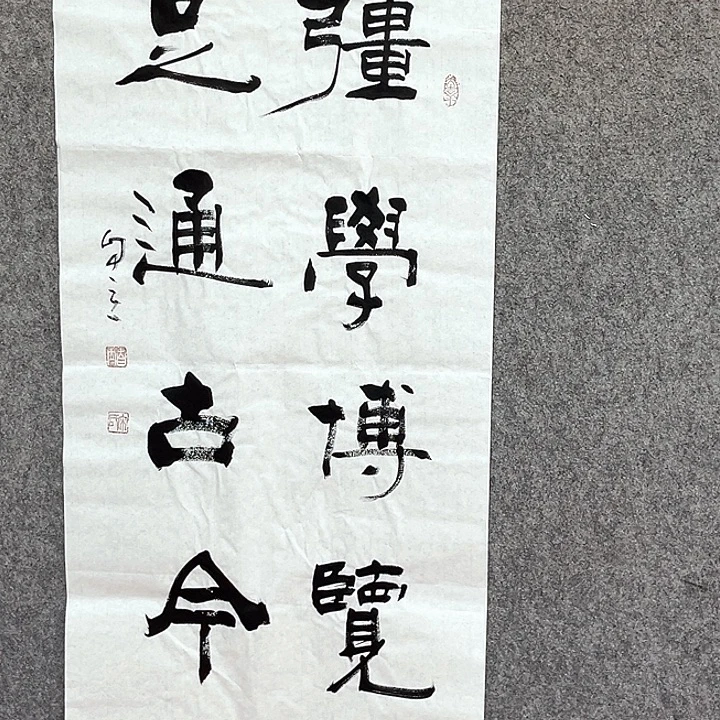 彊學博覽
足通古今